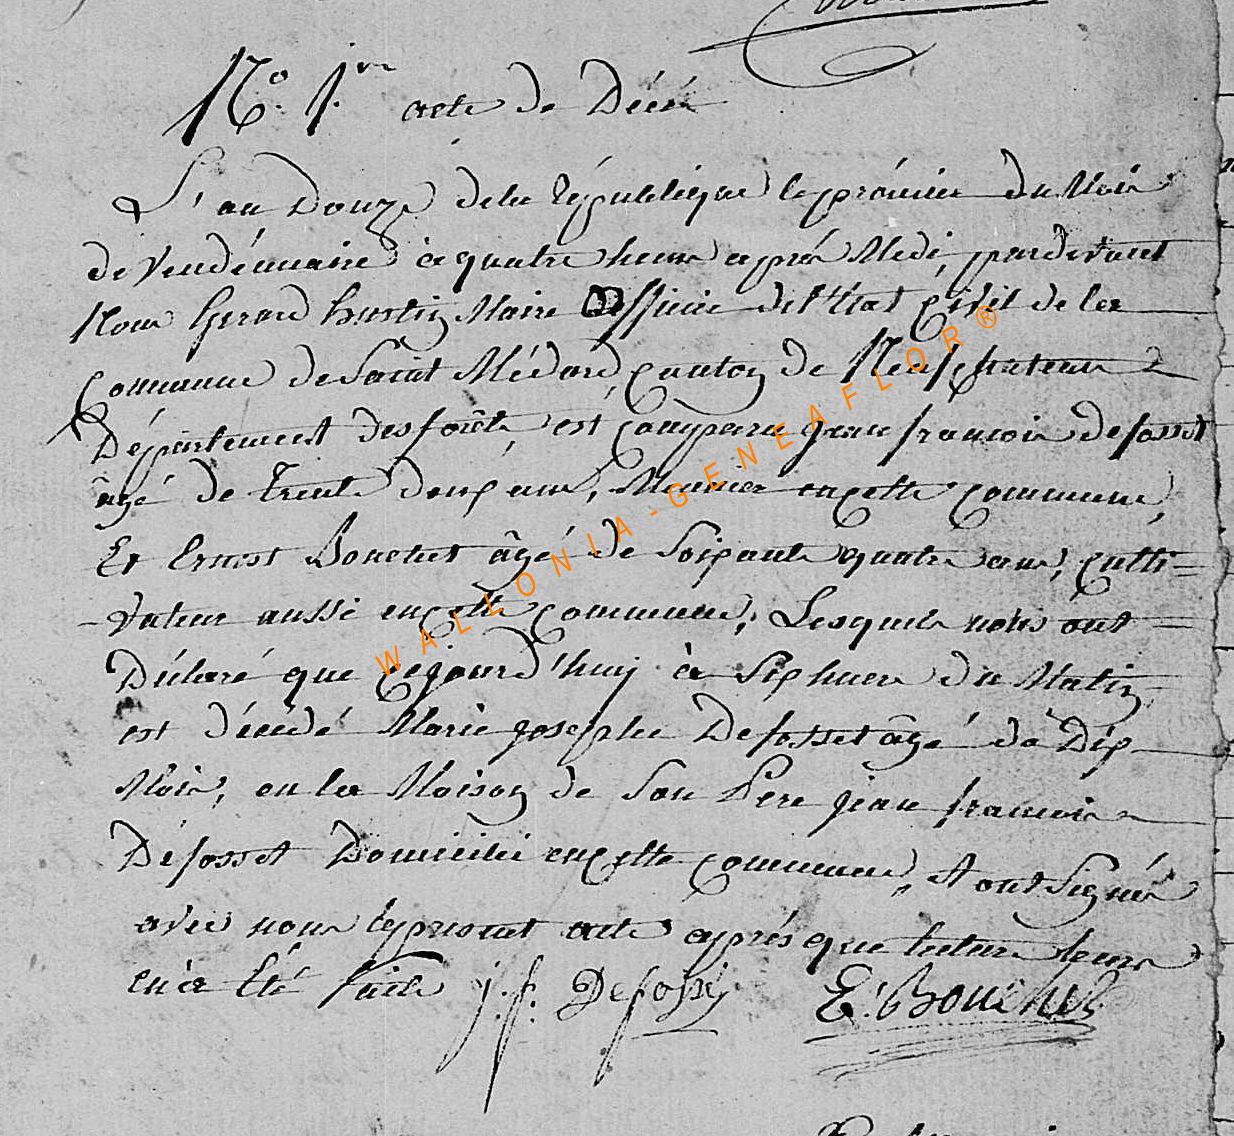 N.º 1.er acte de Décès
L'an Douze de la république le prémier du Mois
de Vendémiaire à quatre heures après Midi, pardevant
Nous Gerard Hustin Maire Officier de l'Etat Civil de la
Commune de Saint Médard, Canton de Neufchateau
Département des forêts, est comparu jean francois defosset
âgé de trente deux ans, Meunier en cette commune,
Et Ernest Bouchet âgé de Soixante quatre ans, culti=
-vateur aussi en cette commune, Lesquels nous ont
Déclaré que cejourd'huy à Six heures du Matin
est décédé Marie josephe Defosset âgé de Dix
Mois, en la Maison de Son Pere jean francois
Défosset Domicilié en cette commune, et ont Signés
avec nous le présent acte après que lecture leurs
en a Eté faite j. f. Defossez E. Bouchet
WALLONIA-GENEAFLOR®